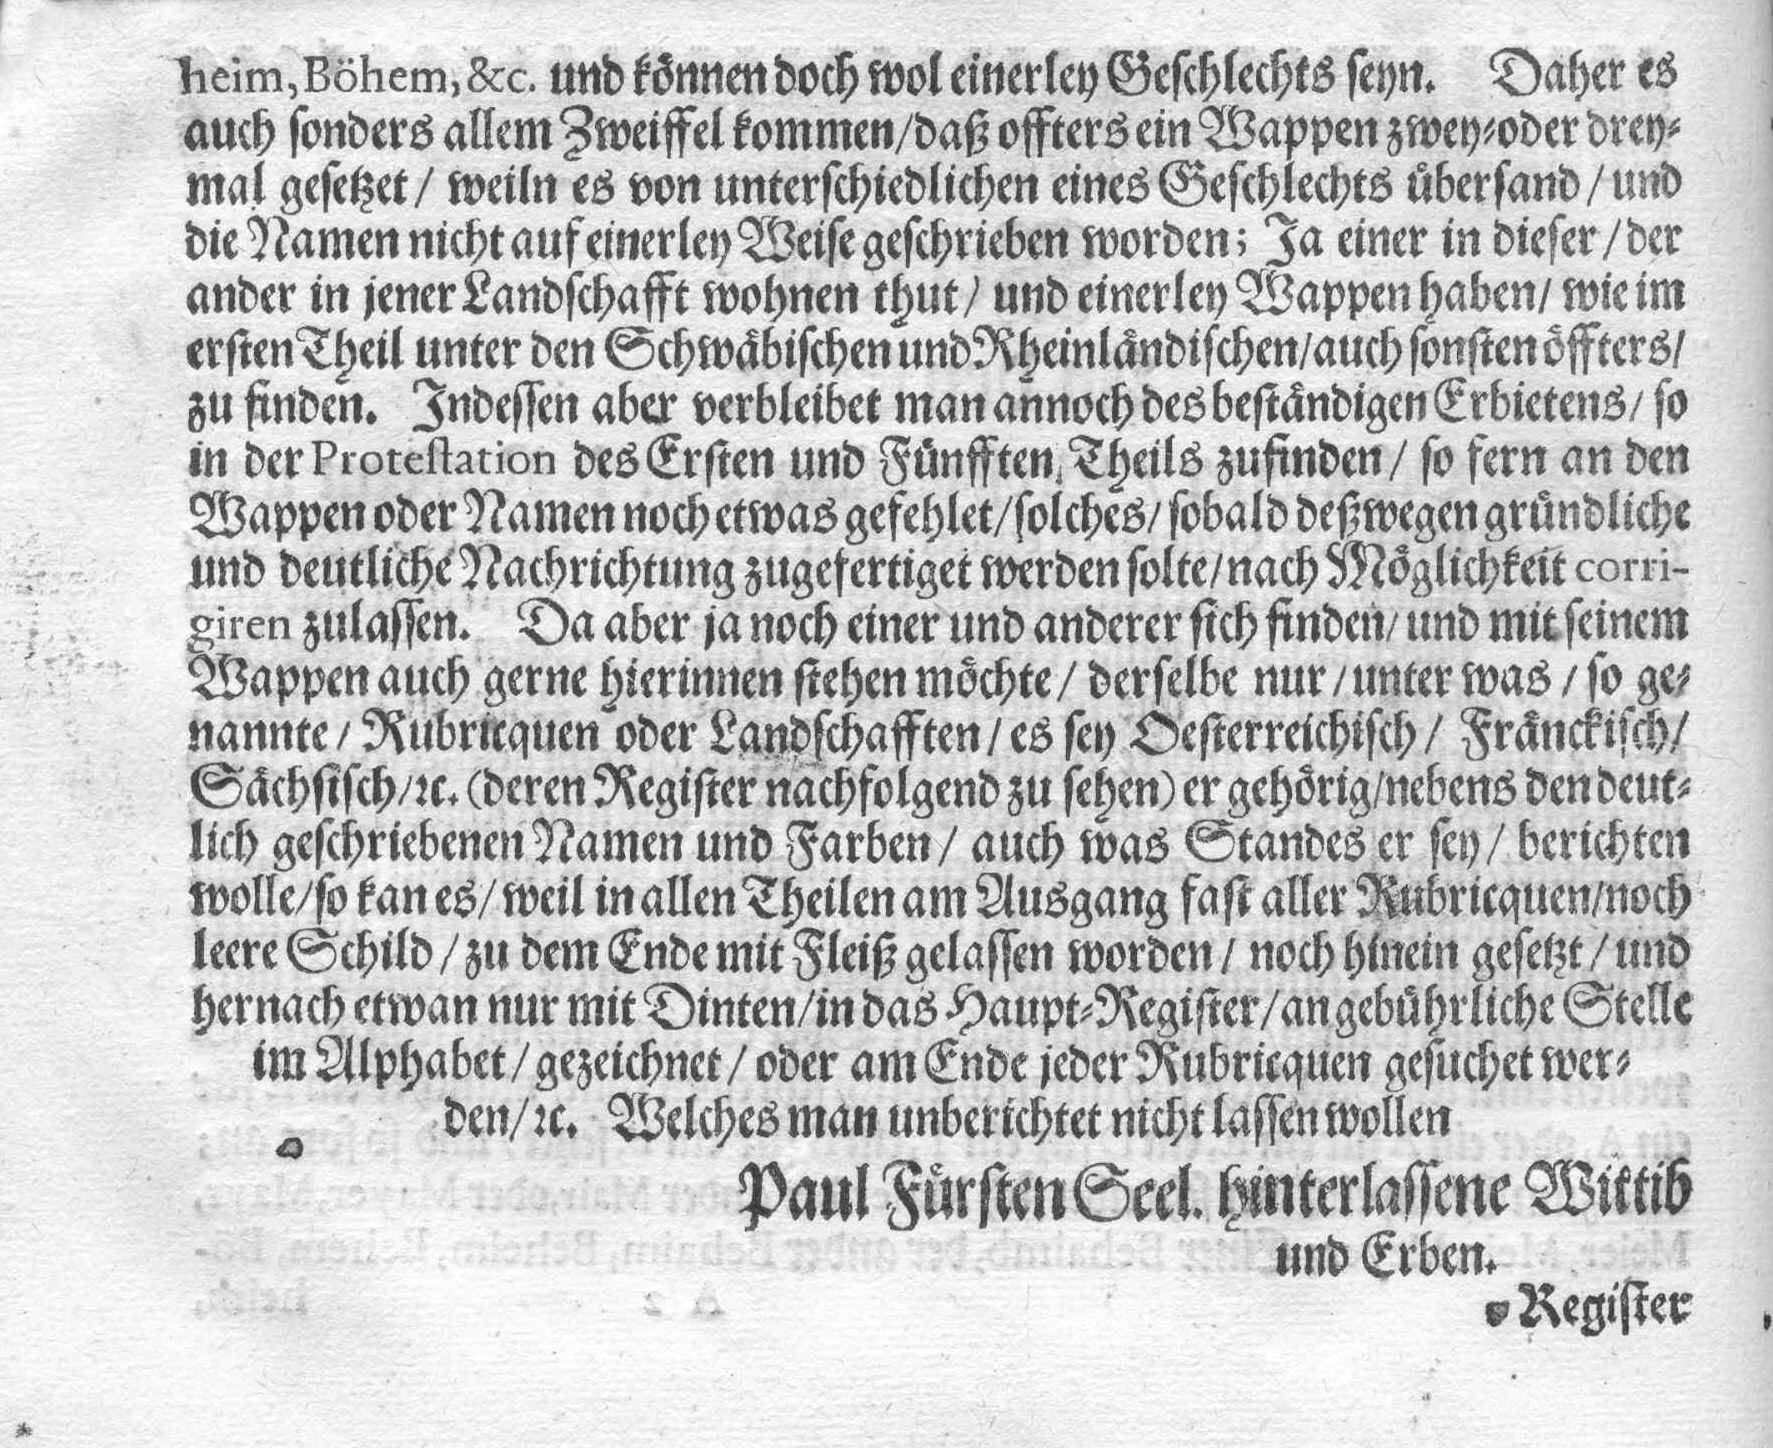 heim, Böhem, &c. und können doch wol einerley Geschlechts seyn. Daher es
auch sonders allem Zweiffel kommen/daß offters ein Wappen zwey-oder drey-
mal gesetzet/ weiln es von unterschiedlichen eines Geschlechts übersand/und
die Namen nicht auf einerley Weise geschrieben worden; Ja einer in dieser/der
ander in jener Landschafft wohnen thut/ und einerley Wappen haben/ wie im
ersten Theil unter den Schwäbischen und Rheinländischen/auch sonsten öffters/
zu finden. Indessen aber verbleibet man annoch des beständigen Erbietens/ so
in der Protestation des Ersten und Fünfften Theils zufinden/ so fern an den
Wappen oder Namen noch etwas gefehlet/solches/sobald deßwegen gründliche
und deutliche Nachrichtung zugefertiget werden solte/nach Möglichkeit corri-
giren zulassen. Da aber ja noch einer und anderer sich finden/und mit seinem
Wappen auch gerne hierinnen stehen möchte/ derselbe nur/unter was/so ge-
nannte/ Rubricquen oder Landschafften/es sey Oesterreichisch/ Fränckisch/
Sächsisch/ꝛc. (deren Register nachfolgend zu sehen) er gehörig/nebens den deut-
lich geschriebenen Namen und Farben/ auch was Standes er sey/ berichten
wolle/so kan es/weil in allen Theilen am Ausgang fast aller Rubricquen/noch
leere Schild/zu dem Ende mit Fleiß gelassen worden/ noch hinein gesetzt/und
hernach etwan nur mit Dinten/in das Haupt-Register/an gebührliche Stelle
im Alphabet/gezeichnet/ oder am Ende jeder Rubricquen gesuchet wer-
den/ꝛc. Welches man unberichtet nicht lassen wollen
Paul Fürsten Seel. hinterlassene Wittib
und Erben.
Register